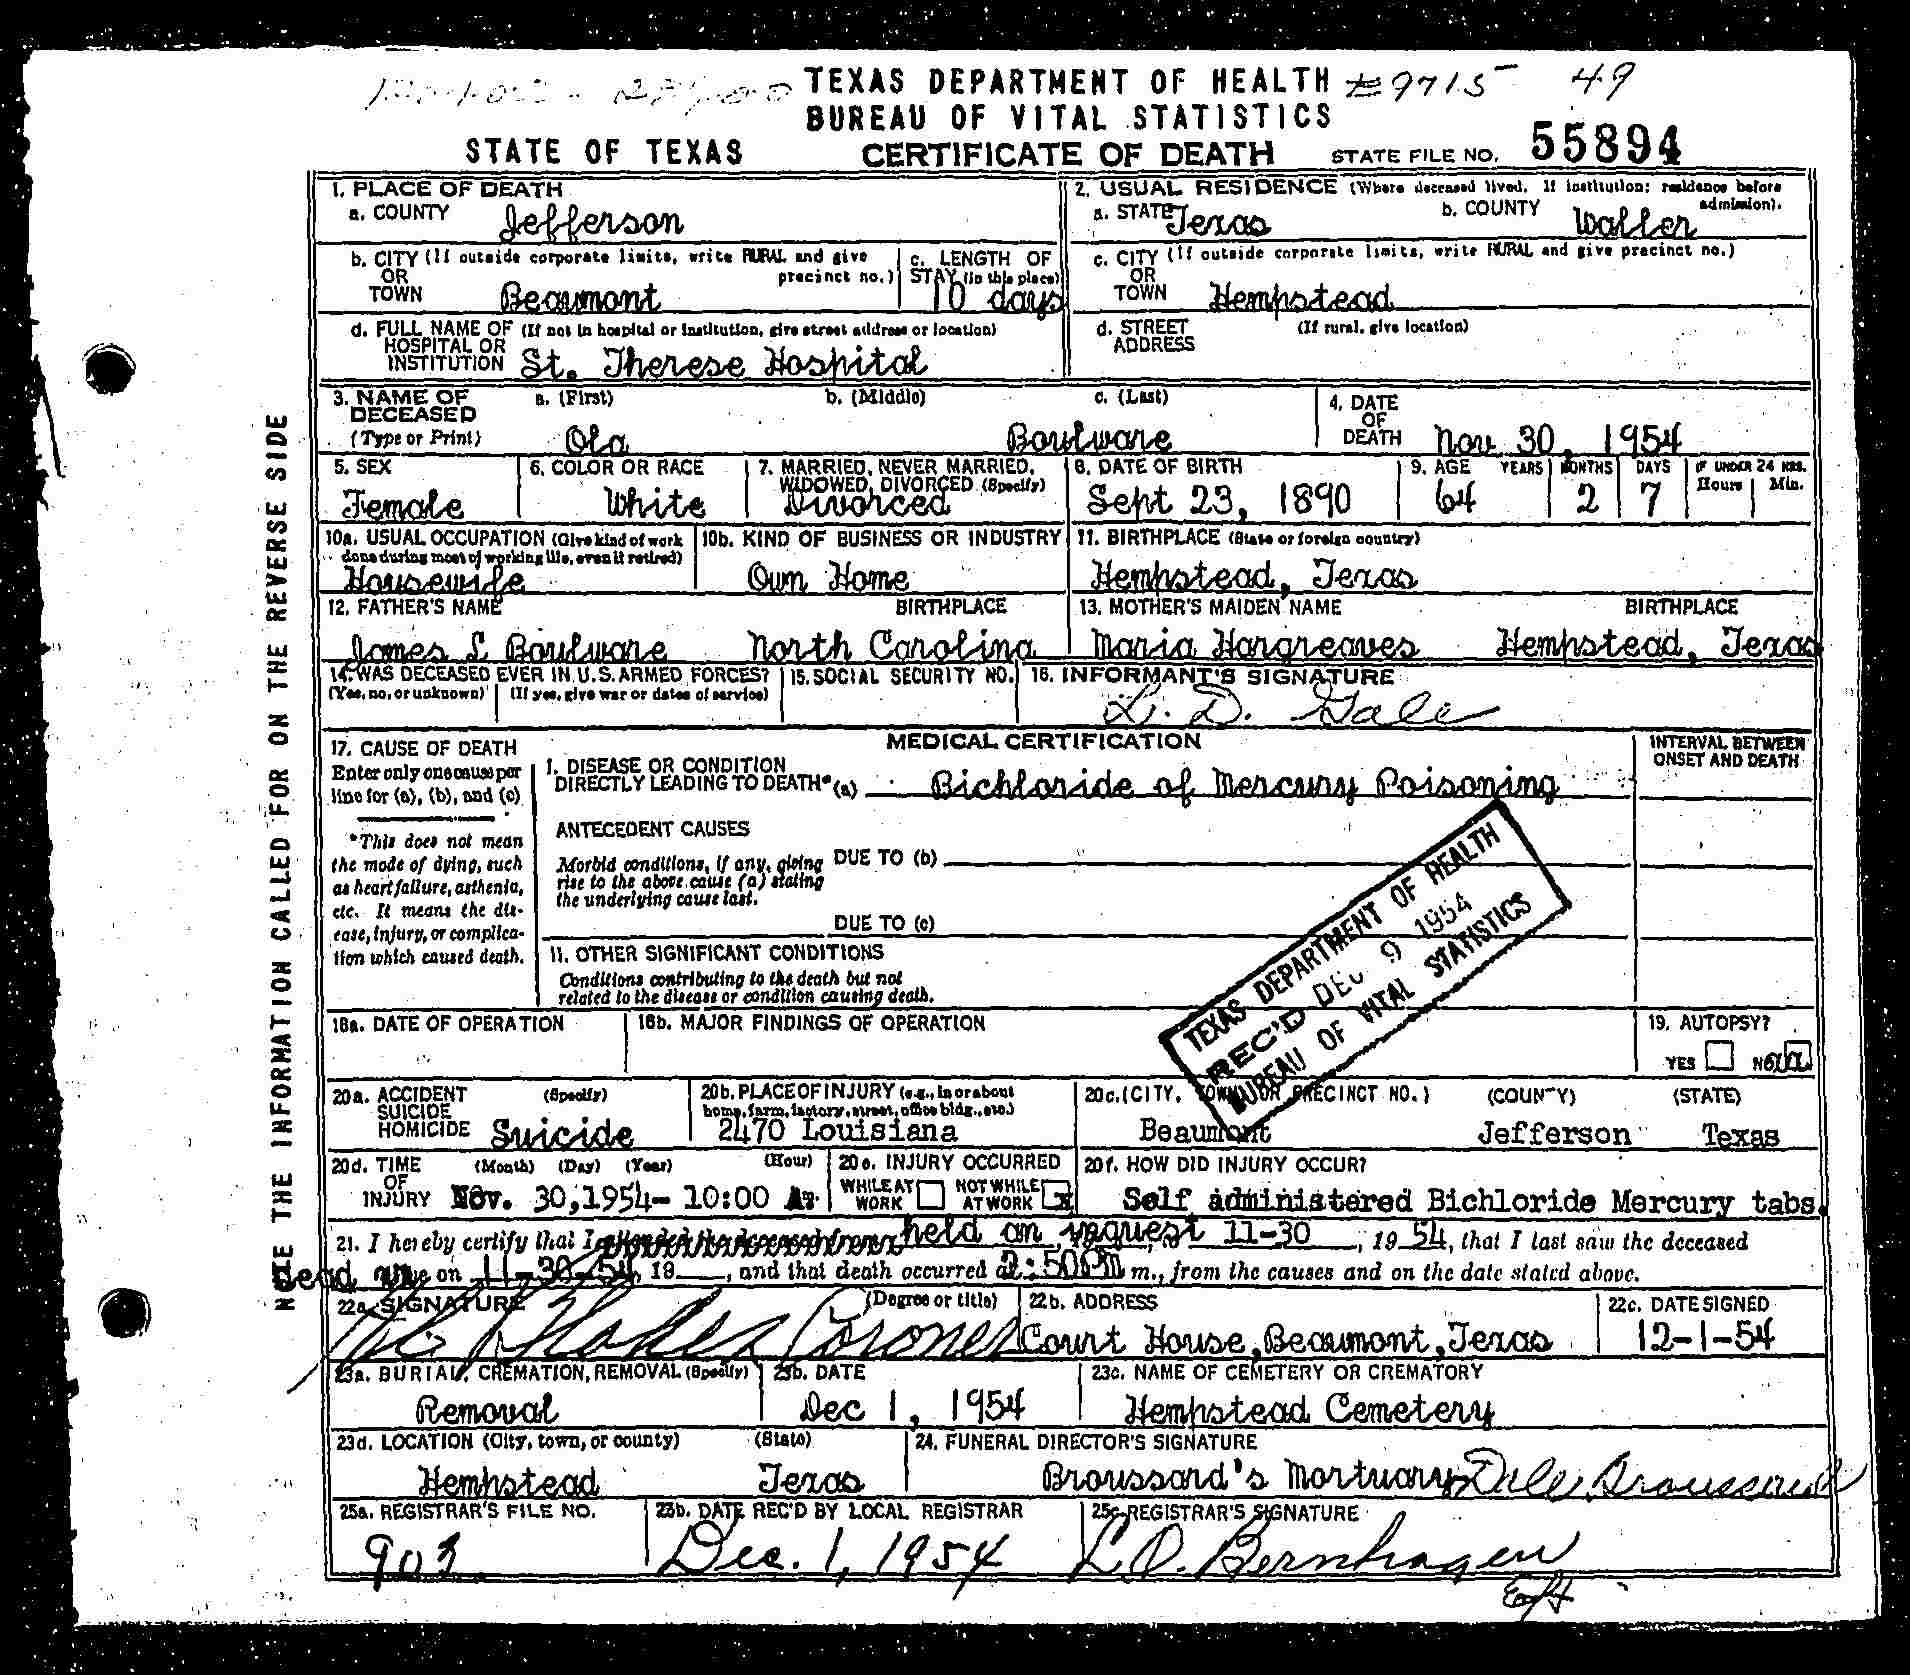 TEXAS DEPARTMENT OF HEALTH #9715 49
BUREAU OF VITAL STATISTICS
STATE OF TEXAS CERTIFICATE OF DEATH STATE FILE NO. 55894
1. PLACE OF DEATH
a. COUNTY Jefferson
2. USUAL RESIDENCE (Where deceased lived. If institution: residence before admission).
a. STATE Texas b. COUNTY Waller
b. CITY (If outside corporate limits, write RURAL and give precinct no.)
OR
TOWN Beaumont
c. LENGTH OF
STAY (in this place)
10 days
c. CITY (If outside corporate limits, write RURAL and give precinct no.)
OR
TOWN Hempstead
d. FULL NAME OF (If not in hospital or institution, give street address or location)
HOSPITAL OR
INSTITUTION St. Therese Hospital
d. STREET (If rural, give location)
ADDRESS
3. NAME OF a. (First) b. (Middle) c. (Last)
DECEASED
(Type or Print) Ola Boulware
4. DATE
OF
DEATH Nov 30, 1954
5. SEX
Female
6. COLOR OR RACE
White
7. MARRIED, NEVER MARRIED,
WIDOWED, DIVORCED (Specify)
Divorced
8. DATE OF BIRTH
Sept 23, 1890
9. AGE YEARS MONTHS DAYS IF UNDER 24 HRS.
Hours Min.
64 2 7
10a. USUAL OCCUPATION (Give kind of work
done during most of working life, even if retired)
Housewife
10b. KIND OF BUSINESS OR INDUSTRY
Own Home
11. BIRTHPLACE (State or foreign country)
Hempstead, Texas
12. FATHER'S NAME BIRTHPLACE
James L Boulware North Carolina
13. MOTHER'S MAIDEN NAME BIRTHPLACE
Maria Hargreaves Hempstead, Texas
14. WAS DECEASED EVER IN U.S. ARMED FORCES?
(Yes, no, or unknown) (If yes, give war or dates of service)
15. SOCIAL SECURITY NO.
16. INFORMANT'S SIGNATURE
L. D. Gale
MEDICAL CERTIFICATION
INTERVAL BETWEEN
ONSET AND DEATH
17. CAUSE OF DEATH
Enter only one cause per
line for (a), (b), and (c)
*This does not mean
the mode of dying, such
as heart failure, asthenia,
etc. It means the dis-
ease, injury, or complica-
tion which caused death.
I. DISEASE OR CONDITION
DIRECTLY LEADING TO DEATH* (a) Bichloride of Mercury Poisoning
ANTECEDENT CAUSES
Morbid conditions, if any, giving
rise to the above cause (a) stating
the underlying cause last.
DUE TO (b)
DUE TO (c)
II. OTHER SIGNIFICANT CONDITIONS
Conditions contributing to the death but not
related to the disease or condition causing death.
TEXAS DEPARTMENT OF HEALTH
REC'D DEC 9 1954
BUREAU OF VITAL STATISTICS
18a. DATE OF OPERATION
18b. MAJOR FINDINGS OF OPERATION
19. AUTOPSY?
YES NO
20a. ACCIDENT (Specify)
SUICIDE
HOMICIDE Suicide
20b. PLACE OF INJURY (e.g., in or about
home, farm, factory, street, office bldg., etc.)
2470 Louisiana
20c. (CITY, TOWN, OR PRECINCT NO.) (COUNTY) (STATE)
Beaumont Jefferson Texas
20d. TIME (Month) (Day) (Year) (Hour)
OF
INJURY Nov. 30, 1954- 10:00 A.
20e. INJURY OCCURRED
WHILE AT
WORK
NOT WHILE
AT WORK x
20f. HOW DID INJURY OCCUR?
Self administered Bichloride Mercury tabs.
21. I hereby certify that I attended the deceased from held an inquest 11-30, 19 54, that I last saw the deceased
dead alive on 11-30-54, 19 , and that death occurred at 2:50P m., from the causes and on the date stated above.
22a. SIGNATURE (Degree or title)
Coroner
22b. ADDRESS
Court House, Beaumont, Texas
22c. DATE SIGNED
12-1-54
23a. BURIAL, CREMATION, REMOVAL (Specify)
Removal
23b. DATE
Dec 1, 1954
23c. NAME OF CEMETERY OR CREMATORY
Hempstead Cemetery
23d. LOCATION (City, town, or county) (State)
Hempstead Texas
24. FUNERAL DIRECTOR'S SIGNATURE
Broussard's Mortuary Dale Broussard
25a. REGISTRAR'S FILE NO.
903
25b. DATE REC'D BY LOCAL REGISTRAR
Dec. 1, 1954
25c. REGISTRAR'S SIGNATURE
L.O. Bernhagen
THE INFORMATION CALLED FOR ON THE REVERSE SIDE